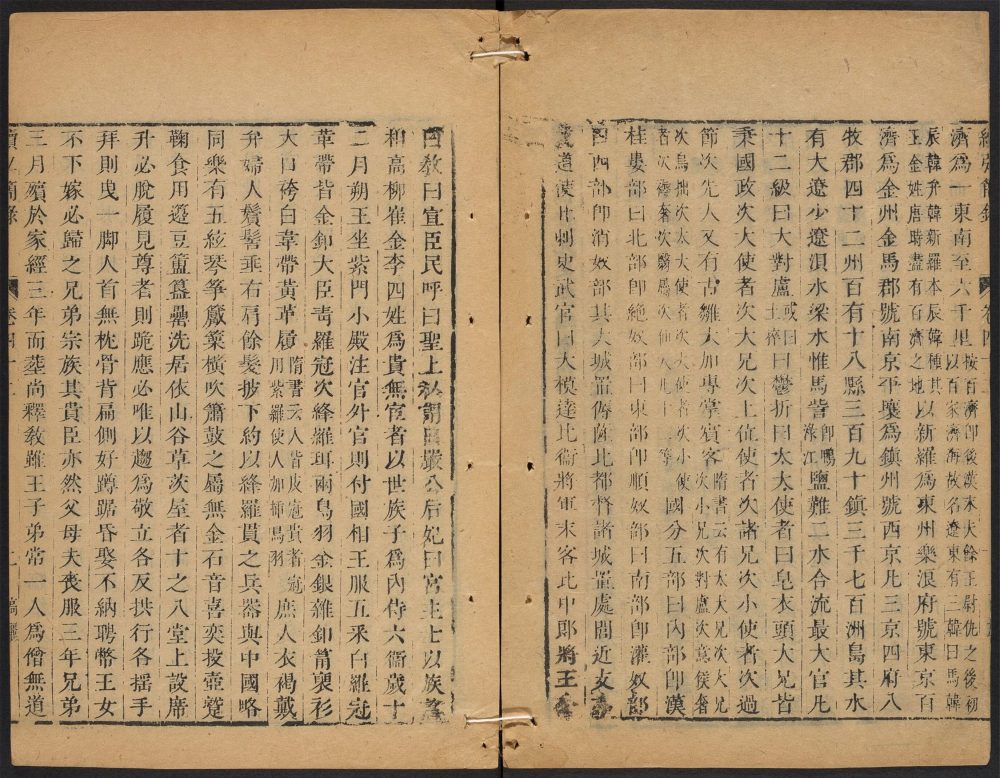 濟爲一東南至六千里按百濟即後漢末夫餘王尉仇之後初以百家濟海故名遼東有三韓曰馬韓
辰韓弁韓新羅本辰韓種其王金姓唐時盡有百濟之地以新羅爲東州樂浪府號東京百
濟爲金州金馬郡號南京平壤爲鎮州號西京凡三京四府八
牧郡四十二州百有十八縣三百九十鎮三千七百洲島其水
有大遼少遼浿水梁水惟馬訾即鴨淥江鹽難二水合流最大官凡
十二級曰大對盧或曰土捽曰鬱折曰太大使者曰皂衣頭大兄皆
秉國政次大使者次大兄次上位使者次諸兄次小使者次過
節次先人又有古雛大加專掌賓客隋書云有太大兄次大兄次小兄次對盧次意侯奢
次烏拙次太大使者次大使者次小使者次褥奢次翳屬次仙人凡十二等國分五部曰內部即漢
桂婁部曰北部即絕奴部曰東部即順奴部曰南部即灌奴部
曰西部即消奴部其大城置傉薩比都督諸城置處閭近支
道使比刺史武官曰大模達比衞將軍末客比中郎將王
曰教曰宣臣民呼曰聖上私謂曰嚴公后妃曰宮主士以族
和高柳崔金李四姓爲貴無宦者以世族子爲內侍六衞歲十
二月朔王坐紫門小殿注官外官則付國相王服五采白羅冠
革帶皆金釦大臣青羅冠次絳羅珥兩鳥羽金銀雜釦筩褎衫
大口袴白韋帶黃革履隋書云人皆皮冠貴者冠用紫羅使人加插鳥羽庶人衣褐戴
弁婦人鬢髻垂右肩餘髮披下約以絳羅貫之兵器與中國略
同樂有五絃琴箏篳篥橫吹簫鼓之屬無金石音喜奕投壺蹵
鞠食用籩豆簠簋罍洗居依山谷草茨屋者十之八堂上設席
升必脫屨見尊者則跪應必唯以趨爲敬立各反拱行各揺手
拜則曳一脚人首無枕骨背扁側好蹲踞昏娶不納聘幣王女
不下嫁必歸之兄弟宗族其貴臣亦然父母夫喪服三年兄弟
三月殯於家經三年而葬尚釋教雖王子弟常一人爲僧無道
卷四